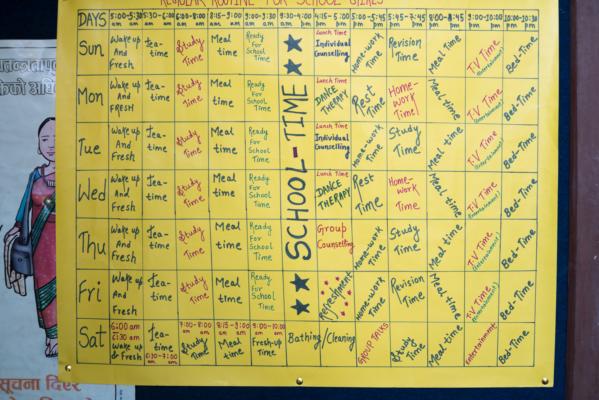 REGULAR ROUTINE FOR SCHOOL GIRLS
DAYS 5:00-5:30 am 5:30-6:00 am 6:00-8:00 am 8:15-9:00 am 9:00-9:30 am 9:30-4:00 pm 4:15-5:00 pm 5:00-5:45 pm 5:45-7:45 pm 8:00-8:45 pm 9:00-10:00 pm 10:00-10:30 pm
Sun Wake up And Fresh Tea-time Study Time Meal time Ready For School Time Lunch Time Individual Counselling Home-work Time Revision Time Meal Time T.V Time (Entertainment) Bed-Time
Mon Wake up And FRESH Tea-time Study Time Meal Time Ready For School Time Lunch Time DANCE THERAPY Rest Time Home-work Time! Meal Time T.V Time (Entertainment) Bed-Time
Tue Wake up And Fresh Tea-time Study Time Meal Time Ready For School Time Lunch Time Individual Counselling Home-work Time Study Time Meal Time T.V Time (Entertainment) Bed-Time
Wed Wake up And Fresh Tea-time Study Time Meal time Ready For School Time Lunch Time DANCE THERAPY Rest Time Home-work Time Meal time T.V Time (Entertainment) Bed-Time
Thu Wake up And Fresh Tea-time Study Time Meal time Ready For School Time Group Counselling Home-work Time Study Time Meal time T.V Time (Entertainment) Bed-Time
Fri Wake up And Fresh Tea-time Study Time Meal time Ready For School Time Refreshment Home-work Time Revision Time Meal Time T.V Time (Entertainment) Bed-Time
SCHOOL-TIME
Sat 6:00 am 6:30 am Wake up & Fresh Tea-time 6:30-7:00 am 7:00-8:00 am Study Time 8:15-9:00 am Meal Time 9:00-10:00 am Fresh-up Time Bathing/Cleaning GROUP TALKS Study Time Meal Time Entertainment Bed-Time
सूचना दिएर